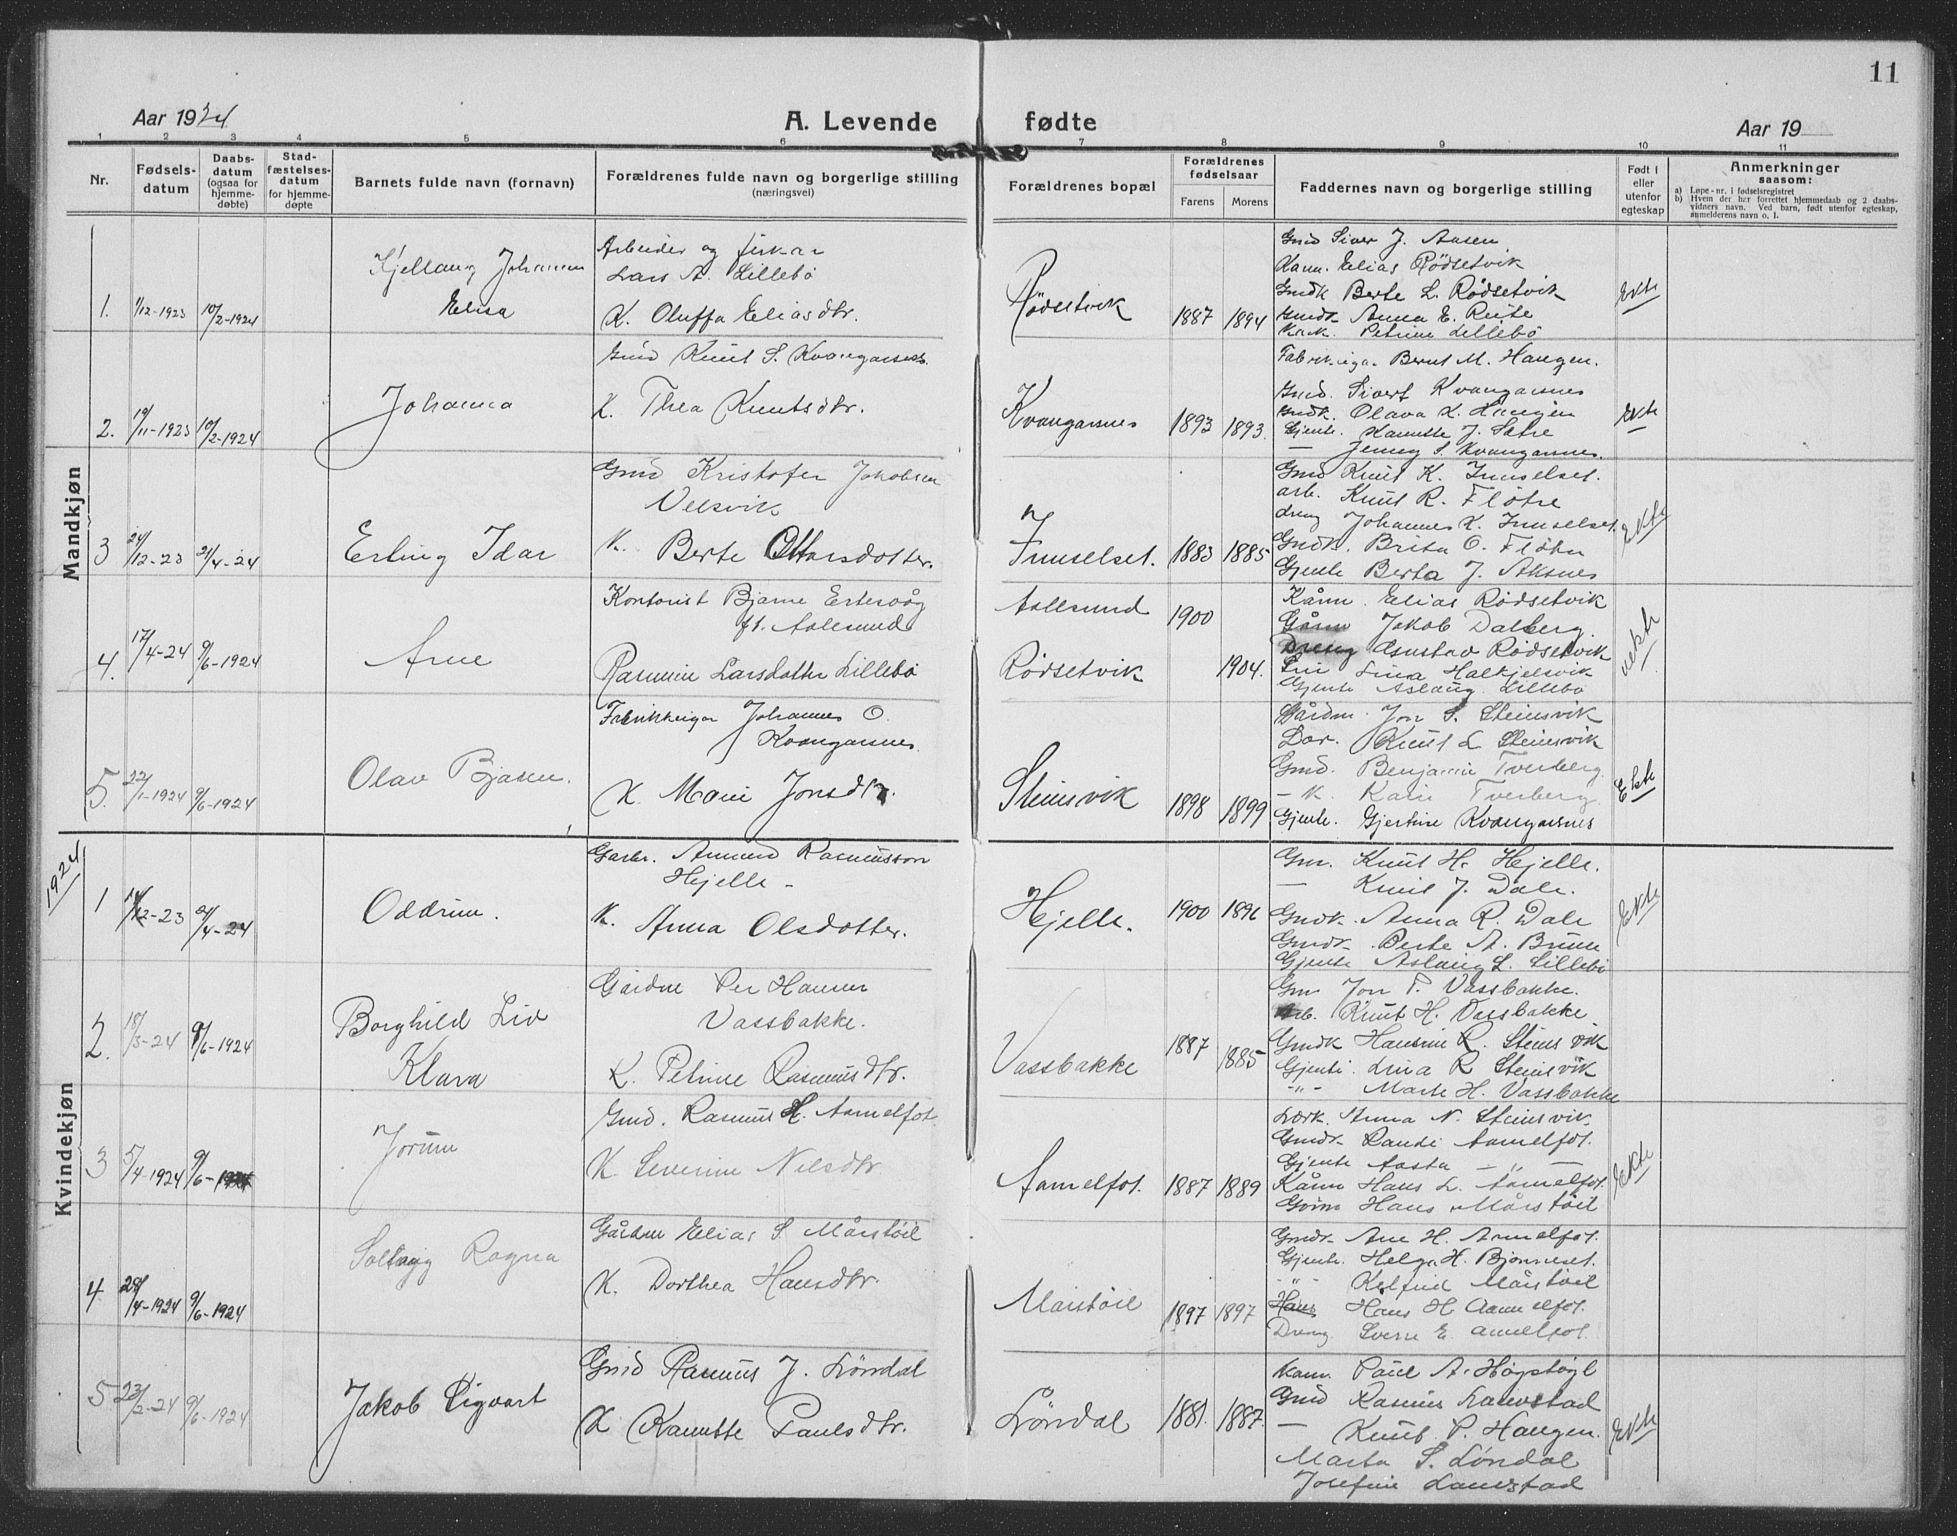 11
Aar 1924
A. Levende fødte
Aar 19
1 2 3 4 5 6 7 8 9 10 11
Nr.
Fødsels-
datum
Daabs-
datum
(ogsaa for
hjemme-
døbte)
Stad-
fæstelses-
datum
for hjemme-
døpte
Barnets fulde navn (fornavn)
Forældrenes fulde navn og borgerlige stilling
(næringsvei)
Forældrenes bopæl
Forældrenes
fødselsaar
Farens Morens
Faddernes navn og borgerlige stilling
Født i
eller
utenfor
egteskap
Anmerkninger
saasom:
a) Løpe-nr. i fødselsregistret
b) Hvem der har forrettet hjemmedaab og 2 daabs-
vidners navn. Ved barn, født utenfor egteskap,
anmelderens navn o. l.
Mandkjøn
1. 1/12-1923 10/2-1924
Kjellaug Johannes
Elisa
Arbeider og
Lars A. Lillebö
K. Oluffa Eliasdtr.
Rödsetvik
1887 1894
Gmd Siver J. Aasen
Kaam. Elias Rödsetvik
Gmdk Berte L. Rödsetvik
Gmdk. Anna E. Reite
Petrine Lillebö
Ekte
2. 19/11-1923 10/2-1924
Johanna
Gmd Knut S. Kvangarsnes
K. Thea Knutsdtr.
Kvangarsnes
1893 1893.
Fabrikeiga. Bernt M. Haugen.
Gmd. Sivert Kvangarsnes
Gmdk. Olava K. Haugen
Gjente. Hanette J. Sætre
— Jenny S. Kvangarsnes.
Ekte
3 24/12-23 21/4-24
Erling Idar
Gmd Kristofer Jakobsen
Velsvik
K. Berte Ottarsdotter.
Innselset.
1883 1885
Gmd Knut K. Innselset.
arb. Knut R. Flötre
dreng Johannes K. Innselset.
Gmdk. Brita O. Flötre
Gjente Berta J. Aksnes
Ekte
4. 17/4-24 9/6-1924
Arne
Kontorist Bjarne Ertesvåg
f1. Aalesund
Rasmine Larsdotter Lillebö
Aalesund
Rödsetvik
1900
1904.
Kåmn. Elias Rödsetvik
Gårm Jakob Dalberg
Dreng Gustav Rödsetvik
Lina Halkjelsvik
Gjente Aslaug Lillebö
uekte
5. 22/1-1924 9/6-1924
Olav Bjarne.
Fabrikkeigar Johannes O.
Kvangarsnes.
K. Marie Jonsdtr.
Steinsvik
1898 1899
Gårdm. Jon S. Steinsvik
Knut L. Steinsvik
Gmd. Benjamin Tverberg
— K. Karin Tverberg
Gjente. Gjertine Kvangarsnes
Ekte
1924
Kvindekjøn
1 14/12-23 21/4-24
Oddrun.
Garbr. Amund Rasmusson
Hjelle -
K. Anna Olsdotter.
Hjelle.
1900 1896
Gm. Knut H. Hjelle.
— Knut J. Dale.
Gmdk. Anna R. Dale
Gmdk. Berte A. Brune
Gjente Aslaug L. Lillebö
Ekte
2. 18/3-24 9/6-1924
Borghild Liv
Klara
Gårdm Per Hansen
Vassbakke.
K. Petrine Rasmusdtr.
Vassbakke
1887 1885
Gm Jon P. Vassbakke.
Arb. Knut H. Vassbakke
Gmdk Hansine R. Steinsvik
Gjente Lina R Steinsvik
-"- Marte H. Vassbakke
3 5/4-1924 9/6-1924
Jorunn
Gmd. Rasmus H. Aamelfot
K Severine Nilsdtr.
Aamelfot.
1887 1889
Anna N. Steinsvik
Gmdk Randi Aamelfot.
Gjente Aasta -"-
Kåmn Hans L. Aamelfot.
Gårm Hans Mårstöil
Ekte
4 28/4-1924 9/6-1924
Solveig Ragna
Gårdm Elias S Mårstöil
K. Dorthea Hansdtr.
Mårstöil
1897 1897
Gmdk Ane H. Aamelfot.
Gjente. Helga H. Bjørneset.
-"- Mårstöil
Hans Hans H Aamelfot.
Dreng Sverre E. Aamelfot.
5 23/2-24 9/6-1924
Jakob Sigvart
Gmd Rasmus J. Löndal
K Hanette Paulsdtr.
Löndal
1881. 1887.
Kaam. Paul A. Högstöyl
Gmd Rasmus Lanestad
— Knut P. Haugen.
Marta S. Löndal
Josefine Lanestad
Ekte